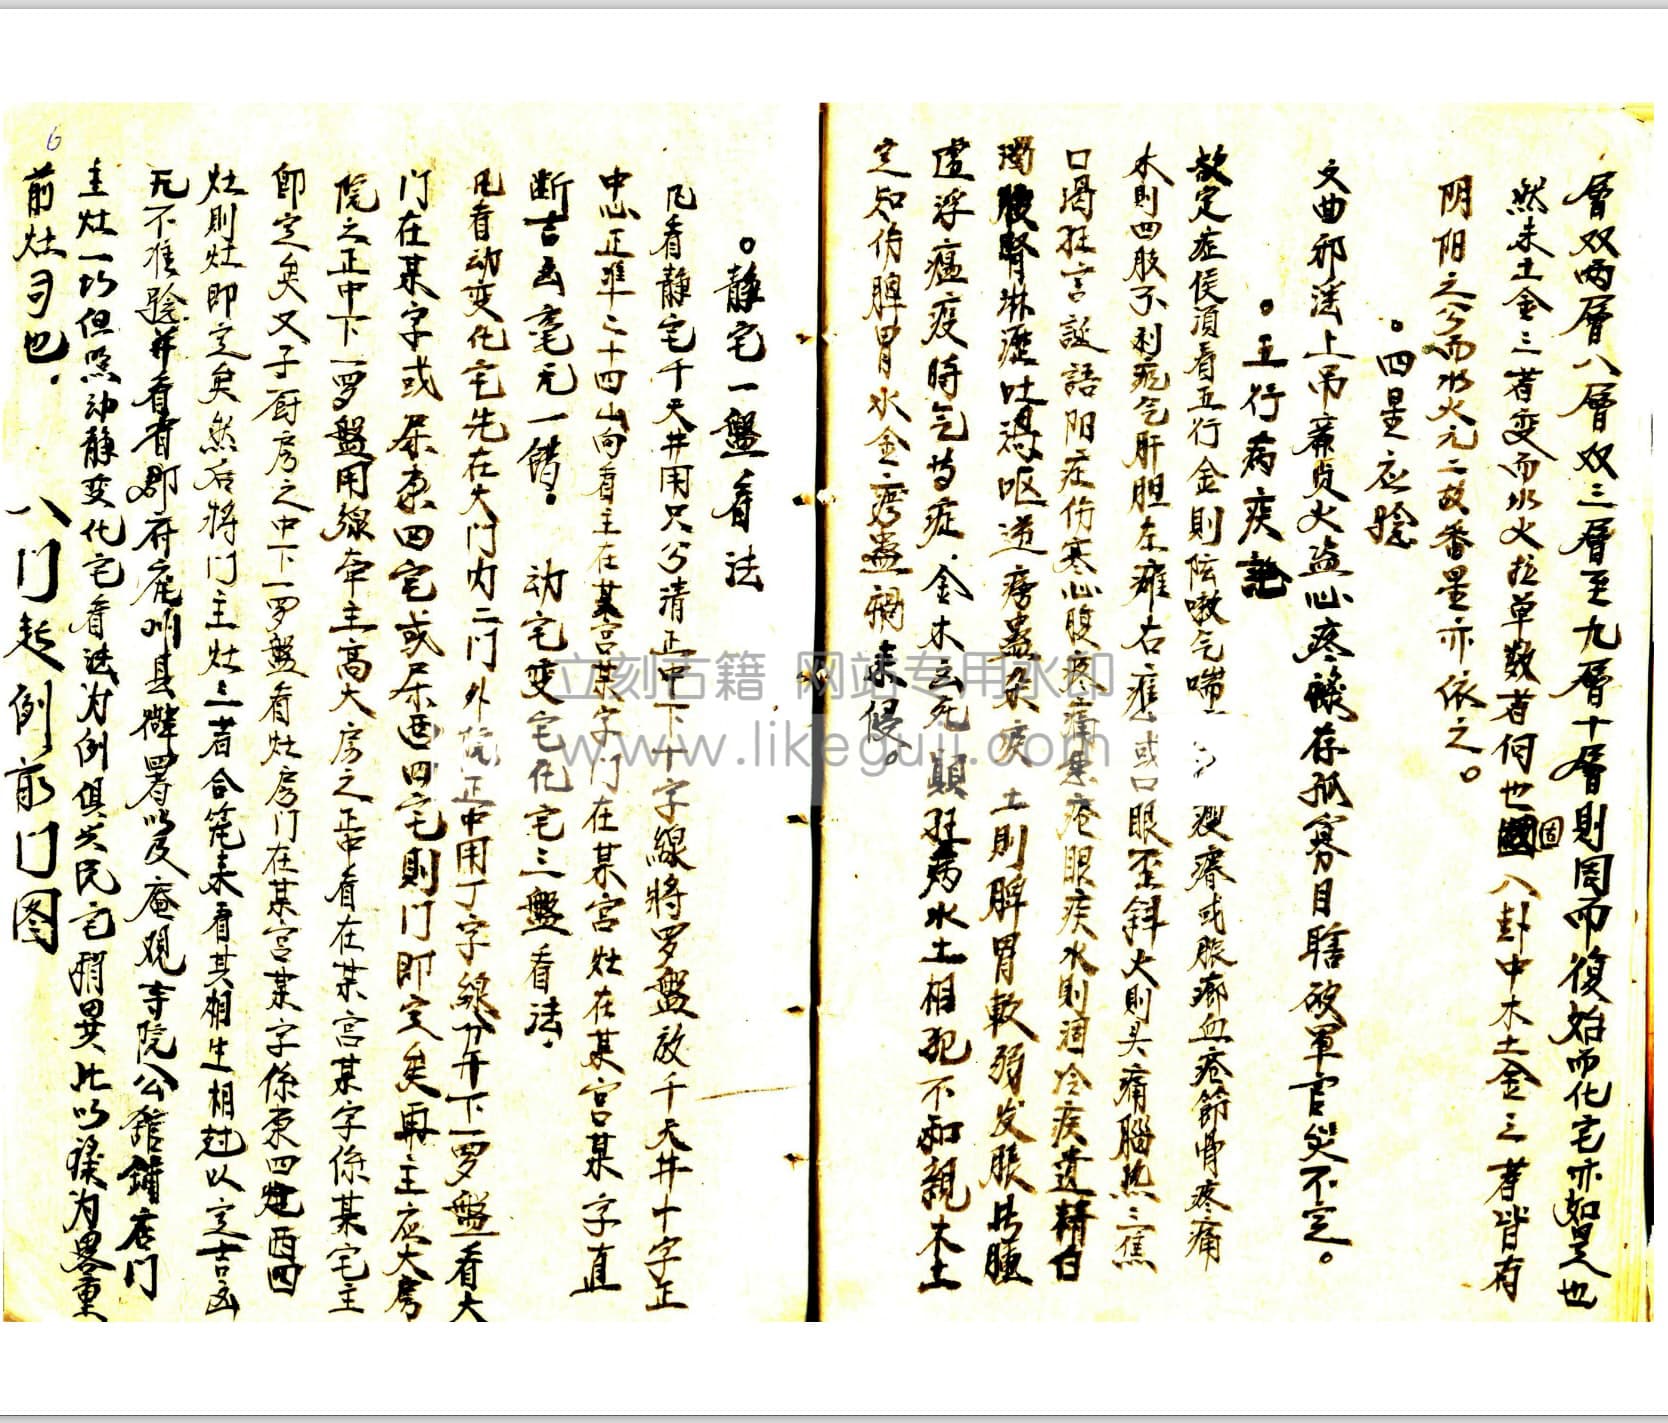 層双两層八層双三層至九層十層則周而復始而化宅亦如是也
然未土金三者变而水火拉单数者何也國圖八卦中木土金三者皆有
阴阳之分而水火元二故番星亦依之。
。四星应驗
文曲邪淫上吊廉贞火盗心疼祿存孤寡目瞎破軍官災不定。
。五行病疾訣
故定症侯須看五行金則咳嗽气喘瘦瘠或脹癆血疮節骨疼痛
木則四肢不利死气肝胆左瘫右痪或口眼歪斜火則头痛腦热三焦
口渴狂言誕語阳症伤寒心腹疼痛悪疮眼疾水則涸冷疾遺精白
濁腰腎淋瀝吐瀉呕逆痨蠱杂疾土則脾胃軟弱发脹牯腫
虛浮瘟疫時气等症.金木凶死顛狂病水土相犯不和親木土
定知伤脾胃水金痨蠱禍来侵。
。静宅一盤看法
凡看静宅千天井用尺分清正中下十字線將罗盤放千天井十字正
中心正準二十四山向看主在某宫某字门在某宫灶在某宫某字直
断吉凶毫无一错。 动宅变宅化宅三盤看法.
凡看动变化宅先在大门内二门外院正中用丁字線分开下一罗盤看大
门在某字或屬東四宅或屬西四宅則门即定矣再主应大房
院之正中下一罗盤用線牵主高大房之正中看在某宫某字係某宅主
即定矣又于厨房之中下一罗盤看灶房门在某宫某字係東四灶西四
灶則灶即定矣然后將门主灶三者合笼来看其相生相尅以定吉凶
无不准驗并看省郡府庄州县衙署以及庵观寺院公舘鋪店门
主灶一切但照动静变化宅看法为例俱与民宅稍異此以梁为畧重
前灶司也. 八门起例前门图
6
立刻古籍 网站专用水印
www.likeguji.com